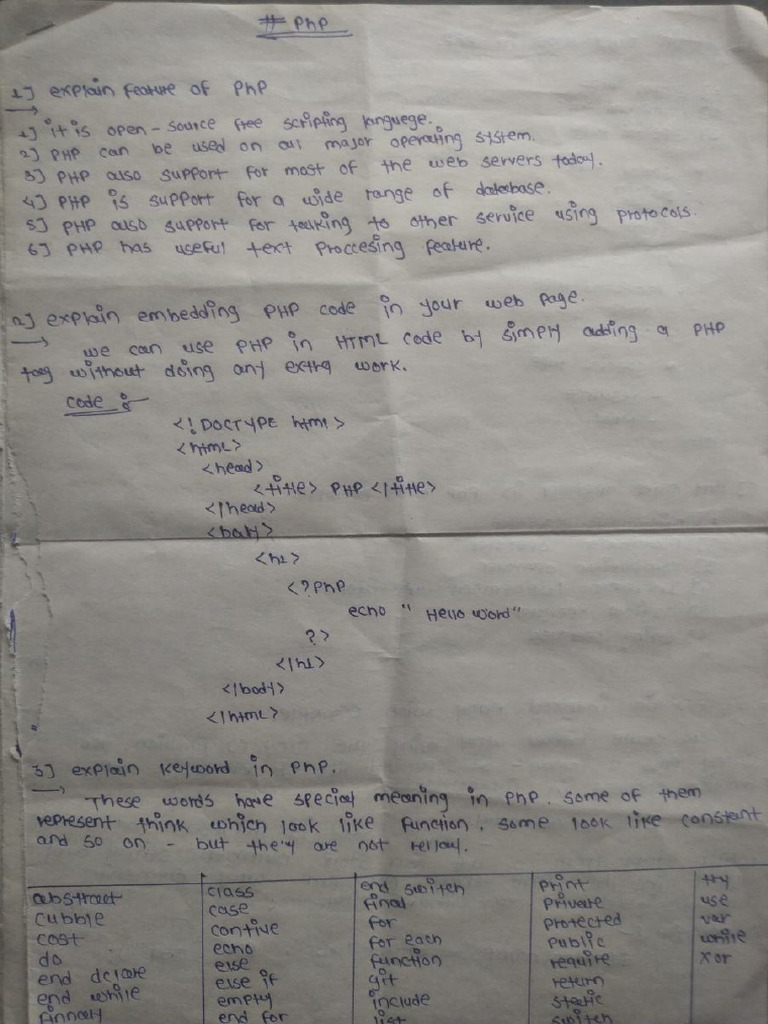 # PhP
1] explain feature of PhP
1] it is open-source free scripting languege.
2] PHP can be used on all major operating system.
3] PHP also support for most of the web servers today.
4] PHP is support for a wide range of database.
5] PHP also support for talking to other service using protocols.
6] PHP has useful text Proccesing feature.
2] explain embedding PHP code in your web page.
we can use PHP in HTML code by simply adding a PHP
tag without doing any extra work.
code :-
<!DOCTYPE html>
<html>
<head>
<title> PHP </title>
</head>
<body>
<h1>
<?php
echo " Hello word"
?>
</h1>
</body>
</html>
3] explain keyword in PhP.
These words have special meaning in PhP. some of them
represent think which look like function. some look like constant
and so on - but they are not rellay.
abstract class end switch print try
cubble case final private use
cost contive for protected var
do echo for each public while
end declare else function require xor
end while else if git return
finnaly empty include static
end for list switch